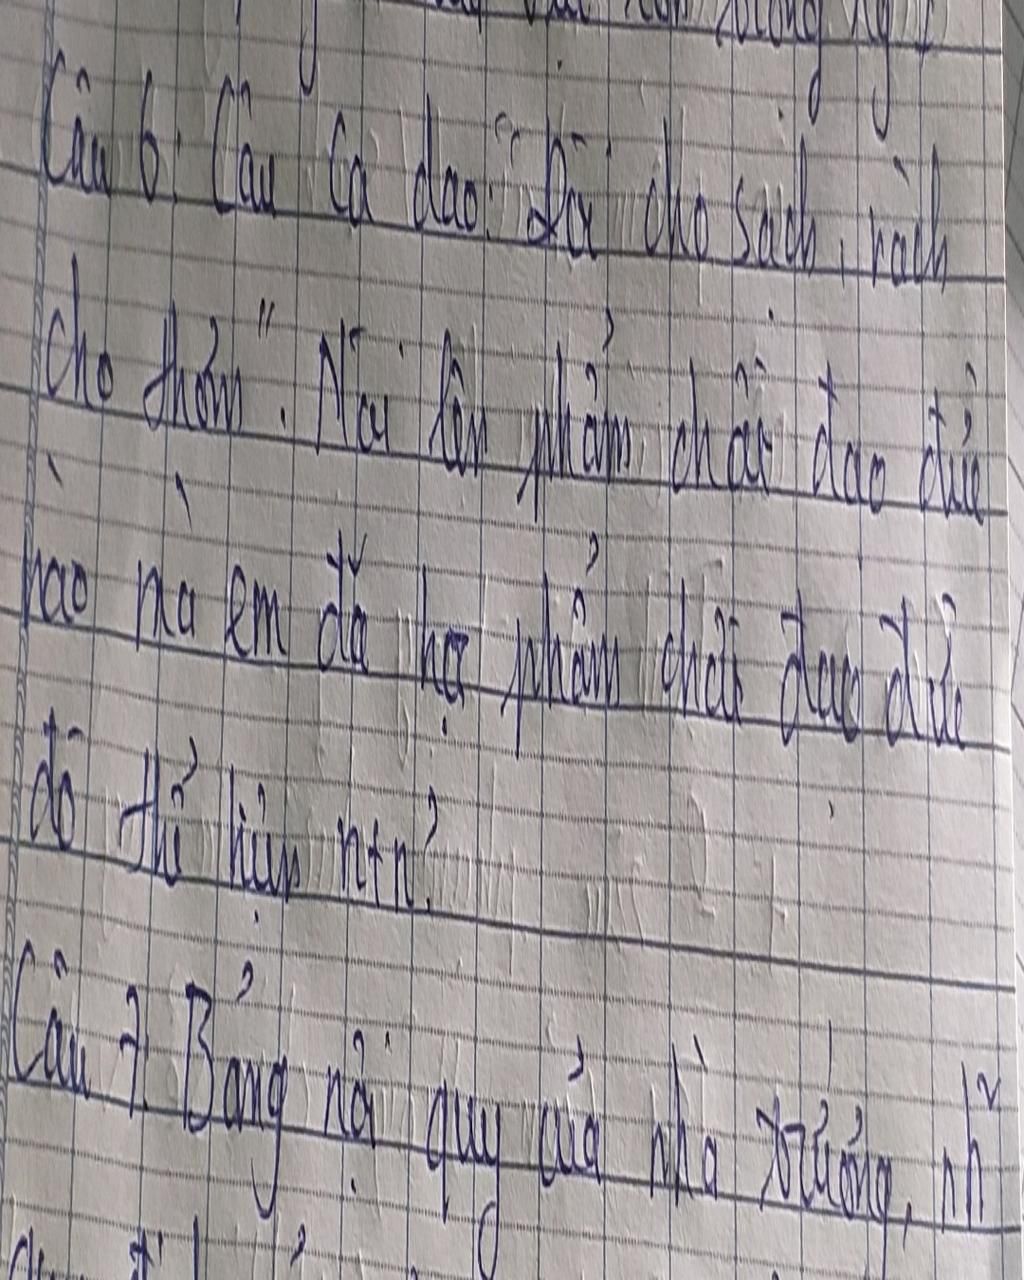 Câu 6: Câu ca dao: "Đói cho sạch, rách
cho thơm". Nói lên phẩm chất đạo đức
nào mà em đã học phẩm chất đạo đức
đó thể hiện ntn?
Câu 7. Bảng nội quy của nhà trường, nh